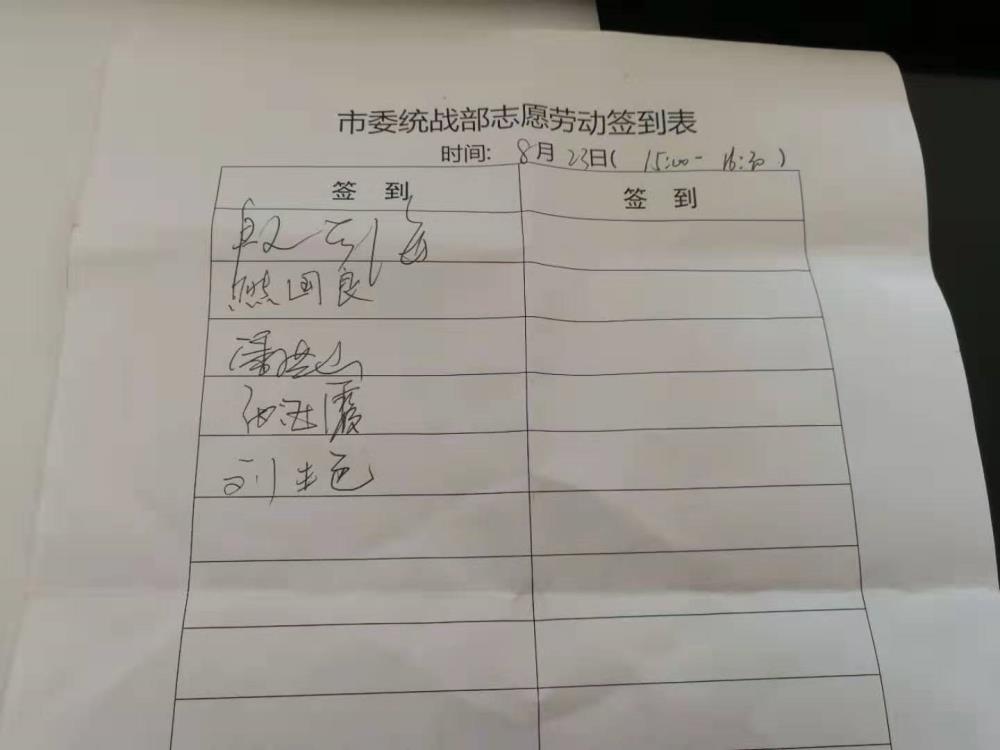 市委统战部志愿劳动签到表
时间: 8月23日( 15:00- 16:30 )
签 到 签 到
熊国良
潘洪山
刘生